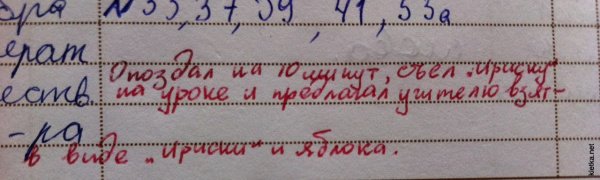 бра N 35, 37, 39, 41, 53а
ерат
Опоздал на 10 минут, съел „Ириску"
еств. на уроке и предлагал учителю взят-
-ра
в виде „Ириски" и яблока.
kletka.net